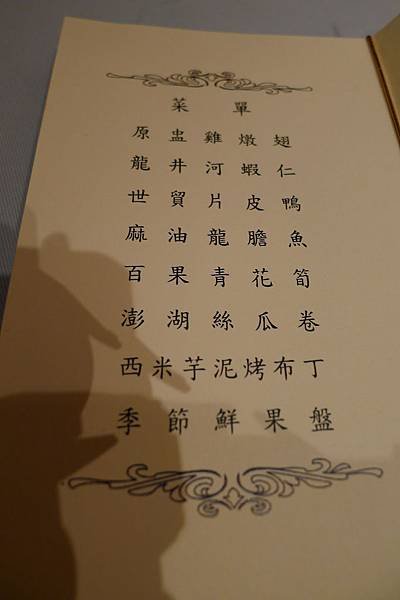 菜單
原盅雞燉翅
龍井河蝦仁
世貿片皮鴨
麻油龍膽魚
百果青花筍
澎湖絲瓜卷
西米芋泥烤布丁
季節鮮果盤